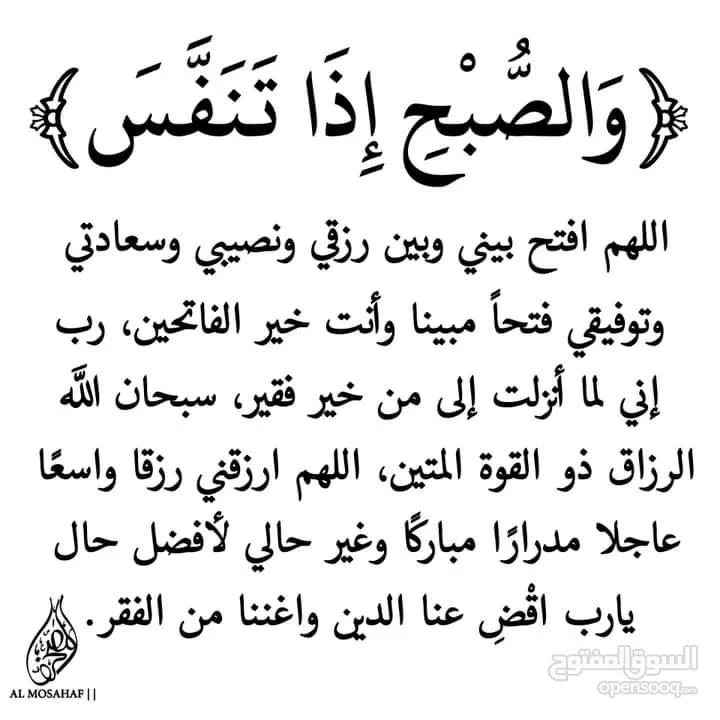 ﴿ وَالصُّبْحِ إِذَا تَنَفَّسَ ﴾
اللهم افتح بيني وبين رزقي ونصيبي وسعادتي
وتوفيقي فتحاً مبينا وأنت خير الفاتحين، رب
إني لما أنزلت إلى من خير فقير، سبحان اللَّه
الرزاق ذو القوة المتين، اللهم ارزقني رزقا واسعًا
عاجلا مدرارًا مباركًا وغير حالي لأفضل حال
يارب اقْضِ عنا الدين واغننا من الفقر.
AL MOSAHAF||
السوق المفتوح
opensooq.com